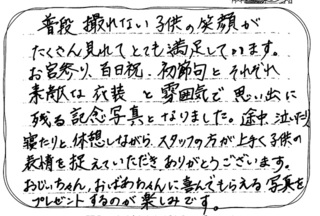 普段撮れない子供の笑顔が
たくさん見れてとても満足しています。
お宮参り、百日祝、初節句とそれぞれ
素敵な衣装と雰囲気で思い出に
残る記念写真となりました。途中泣いたり、
寝たりと、休憩しながら、スタッフの方が上手く子供の
表情を捉えていただきありがとうございます。
おじいちゃん、おばあちゃんに喜んでもらえる写真を
プレゼントするのが楽しみです。